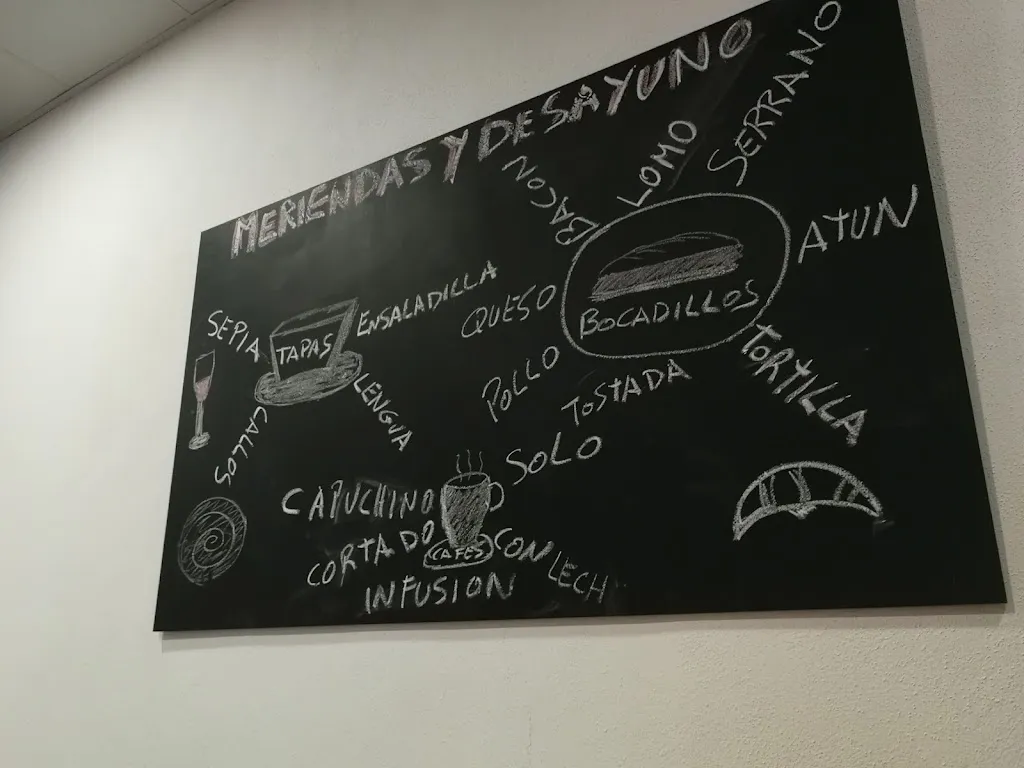 MERIENDAS Y DESAYUNO
BACON
LOMO
SERRANO
ATUN
QUESO
BOCADILLOS
POLLO
TOSTADA
TORTILLA
SEPIA
TAPAS
ENSALADILLA
LENGUA
CALLOS
SOLO
CAPUCHINO
CORTADO
CAFES
CON LECH
INFUSION